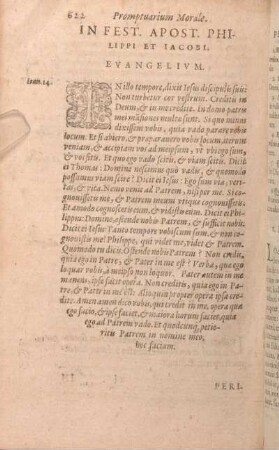 622 Promptuarium Morale.
IN FEST. APOST. PHI-
LIPPI ET IACOBI.
EVANGELIVM.
Ioan. 14.
IN illo tempore, dixit Iesus discipulis suis:
Non turbetur cor vestrum. Creditis in
Deum, & in me credite. In domo patris
mei mãsiones multæ sunt. Si quo minus
dixissem vobis, quia vado parare vobis
locum. Et si abiero, & præparauero vobis locum, iterum
veniam, & accipiam vos ad meipsum, vt vbi ego sum,
& vos sitis. Et quo ego vado scitis, & viam scitis. Dicit
ei Thomas: Domine nescimus quò vadis, & quomodo
possumus viam scire? Dicit ei Iesus: Ego sum via, veri-
tas, & vita. Nemo venit ad Patrem, nisi per me. Si co-
gnouissetis me, & Patrem meum vtique cognouissetis.
Et amodo cognoscetis eum, & vidistis eum. Dicit ei Phi-
lippus: Domine, ostende nobis Patrem, & sufficit nobis.
Dicit ei Iesus: Tanto tempore vobiscum sum, & non co-
gnouistis me? Philippe, qui videt me, videt & Patrem.
Quomodo tu dicis: Ostende nobis Patrem? Non credis,
quia ego in Patre, & Pater in me est? Verba, quæ ego
loquor vobis, à meipso non loquor. Pater autem in me
manens, ipse facit opera. Non creditis, quia ego in Pa-
tre, & Pater in me est? Alioquin propter opera ipsa cre-
dite. Amen amen dico vobis, qui credit in me, opera quæ
ego facio, & ipse faciet, & maiora horum faciet, quia
ego ad Patrem vado. Et quodcunq; petie-
ritis Patrem in nomine meo,
hoc faciam.
PERI-